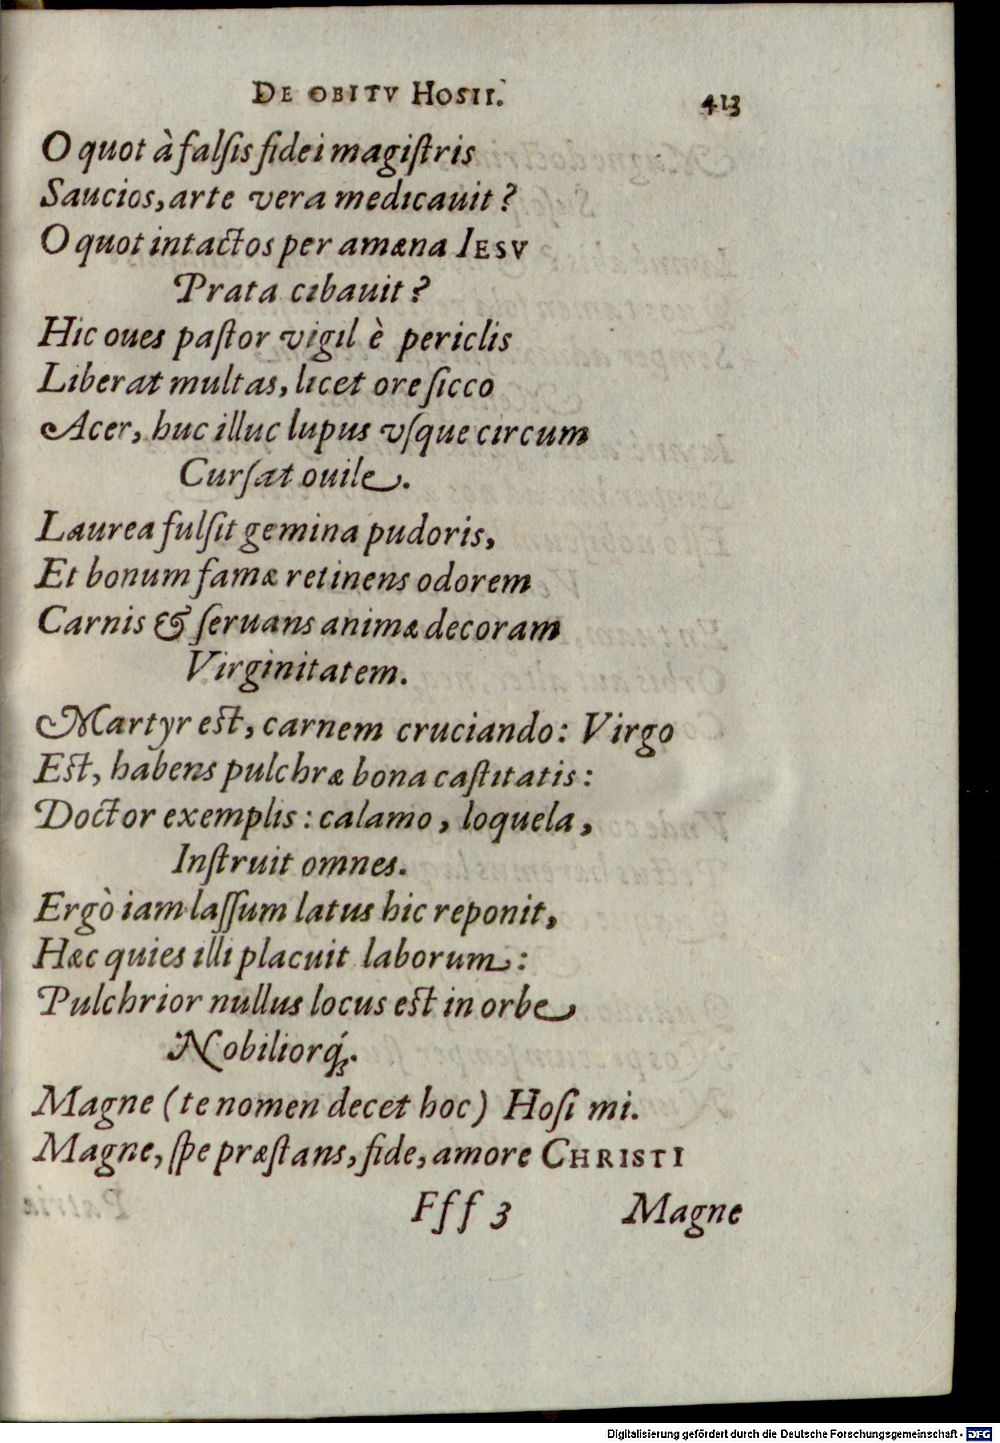 DE OBITV HOSII. 413
O quot à falſis fidei magiſtris
Saucios, arte vera medicauit?
O quot intactos per amæna IESV
Prata cibauit?
Hic oues paſtor vigil è periclis
Liberat multas, licet ore ſicco
Acer, huc illuc lupus vſque circum
Curſat ouile.
Laurea fulſit gemina pudoris,
Et bonum famæ retinens odorem
Carnis & ſeruans animæ decoram
Virginitatem.
Martyr est, carnem cruciando: Virgo
Est, habens pulchræ bona caſtitatis:
Doctor exemplis: calamo, loquela,
Inſtruit omnes.
Ergò iam laſſum latus hic reponit,
Hæc quies illi placuit laborum:
Pulchrior nullus locus est in orbe
Nobiliorq́;.
Magne (te nomen decet hoc) Hoſi mi.
Magne, ſpe præſtans, fide, amore CHRISTI
Fff 3 Magne
Digitalisierung gefördert durch die Deutsche Forschungsgemeinschaft - DFG